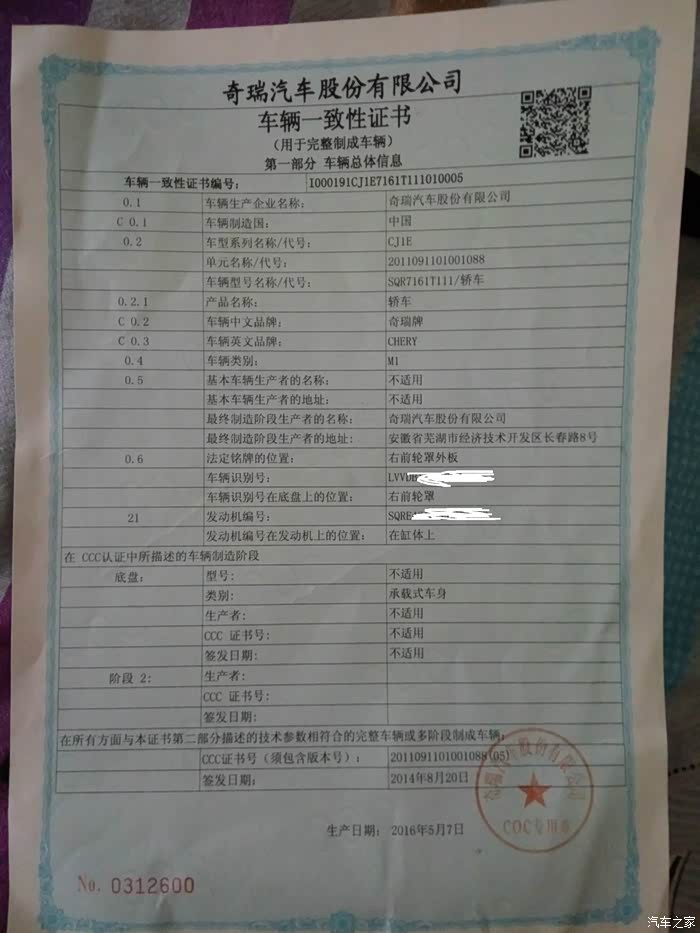 奇瑞汽车股份有限公司
车辆一致性证书
(用于完整制成车辆)
第一部分 车辆总体信息
车辆一致性证书编号: I000191CJ1E7161T111010005
0.1 车辆生产企业名称: 奇瑞汽车股份有限公司
C 0.1 车辆制造国: 中国
0.2 车型系列名称/代号: CJ1E
单元名称/代号: 2011091101001088
车辆型号名称/代号: SQR7161T111/轿车
0.2.1 产品名称: 轿车
C 0.2 车辆中文品牌: 奇瑞牌
C 0.3 车辆英文品牌: CHERY
0.4 车辆类别: M1
0.5 基本车辆生产者的名称: 不适用
基本车辆生产者的地址: 不适用
最终制造阶段生产者的名称: 奇瑞汽车股份有限公司
最终制造阶段生产者的地址: 安徽省芜湖市经济技术开发区长春路8号
0.6 法定铭牌的位置: 右前轮罩外板
车辆识别号: LVVD
车辆识别号在底盘上的位置: 右前轮罩
21 发动机编号: SQRE
发动机编号在发动机上的位置: 在缸体上
在 CCC认证中所描述的车辆制造阶段
底盘: 型号: 不适用
类别: 承载式车身
生产者: 不适用
CCC 证书号: 不适用
签发日期: 不适用
阶段 2: 生产者:
CCC 证书号:
签发日期:
在所有方面与本证书第二部分描述的技术参数相符合的完整车辆或多阶段制成车辆:
CCC证书号 (须包含版本号) : 2011091101001088(05)
签发日期: 2014年8月20日
奇瑞汽车股份有限公司
COC专用章
生产日期: 2016年5月7日
No. 0312600
汽车之家